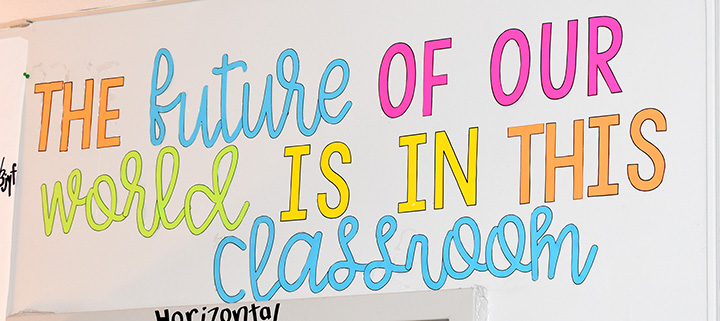 THE future OF OUR
world IS IN THIS
classroom
Horizontal